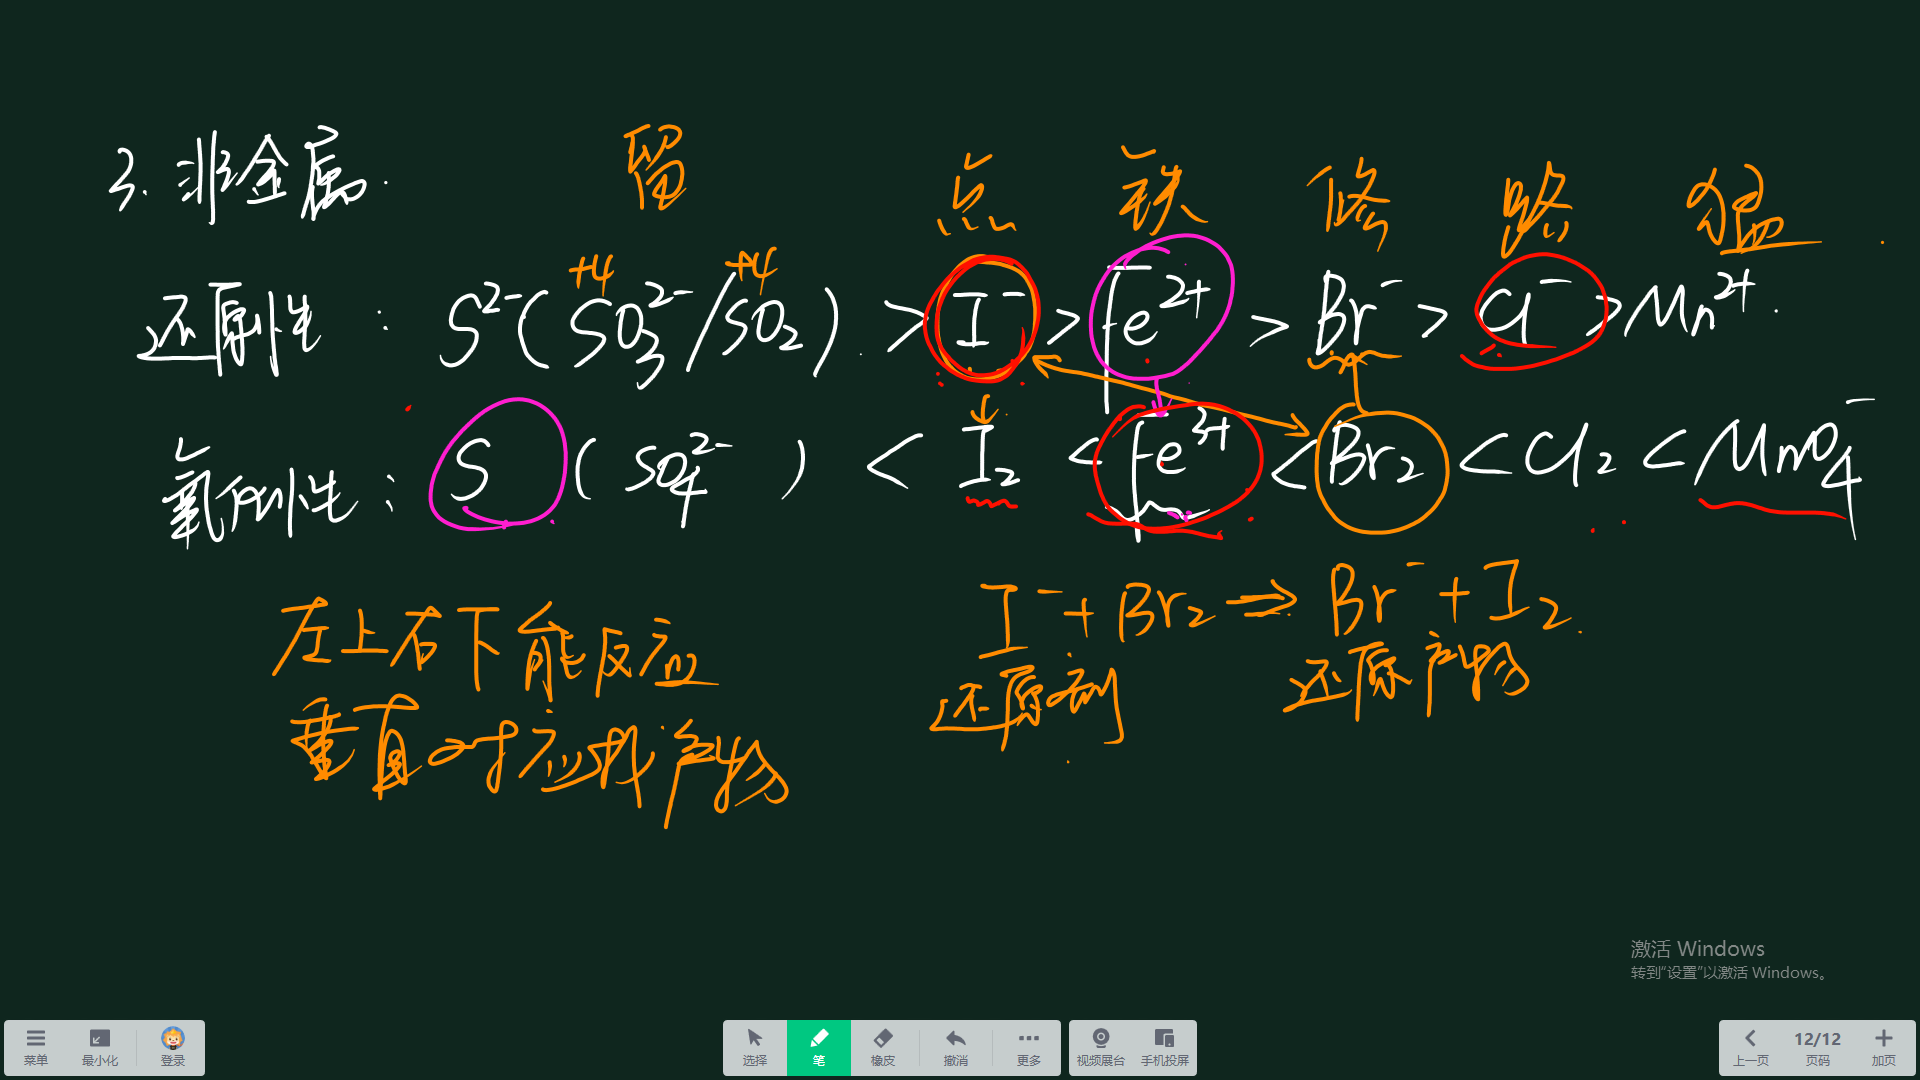 3. 非金属.
留 点 铁 修 路 猛.
+4 +4
还原性: S²⁻(SO₃²⁻/SO₂) > I⁻ > Fe²⁺ > Br⁻ > Cl⁻ > Mn²⁺.
氧化性: S (SO₄²⁻) < I₂ < Fe³⁺ < Br₂ < Cl₂ < MnO₄⁻
左上右下能反应
垂直对应找产物
I⁻ + Br₂ ⇒ Br⁻ + I₂.
还原剂 还原产物
激活 Windows
转到“设置”以激活 Windows。
菜单 最小化 登录
选择 笔 橡皮 撤消 更多 视频展台 手机投屏
上一页 12/12 页码 加页